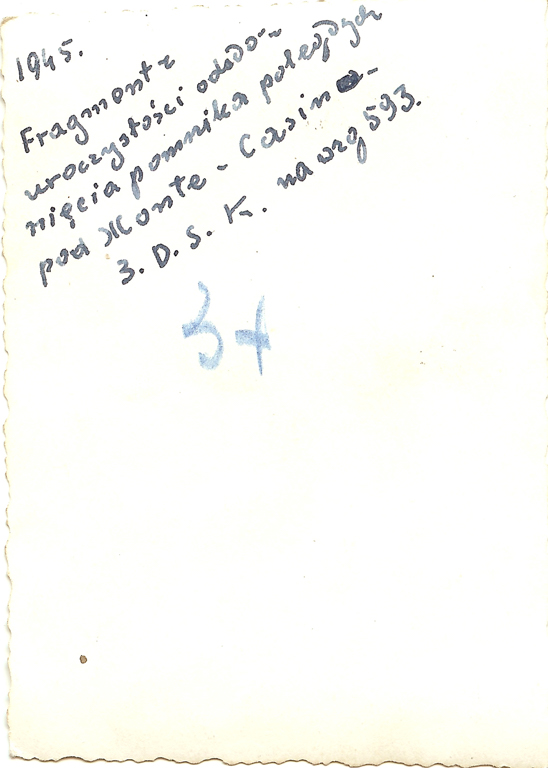 1945.
Fragment z
uroczystości odsło-
nięcia pomnika poległych
pod Monte - Casino -
3. D. S. K. na wzg 593.
34